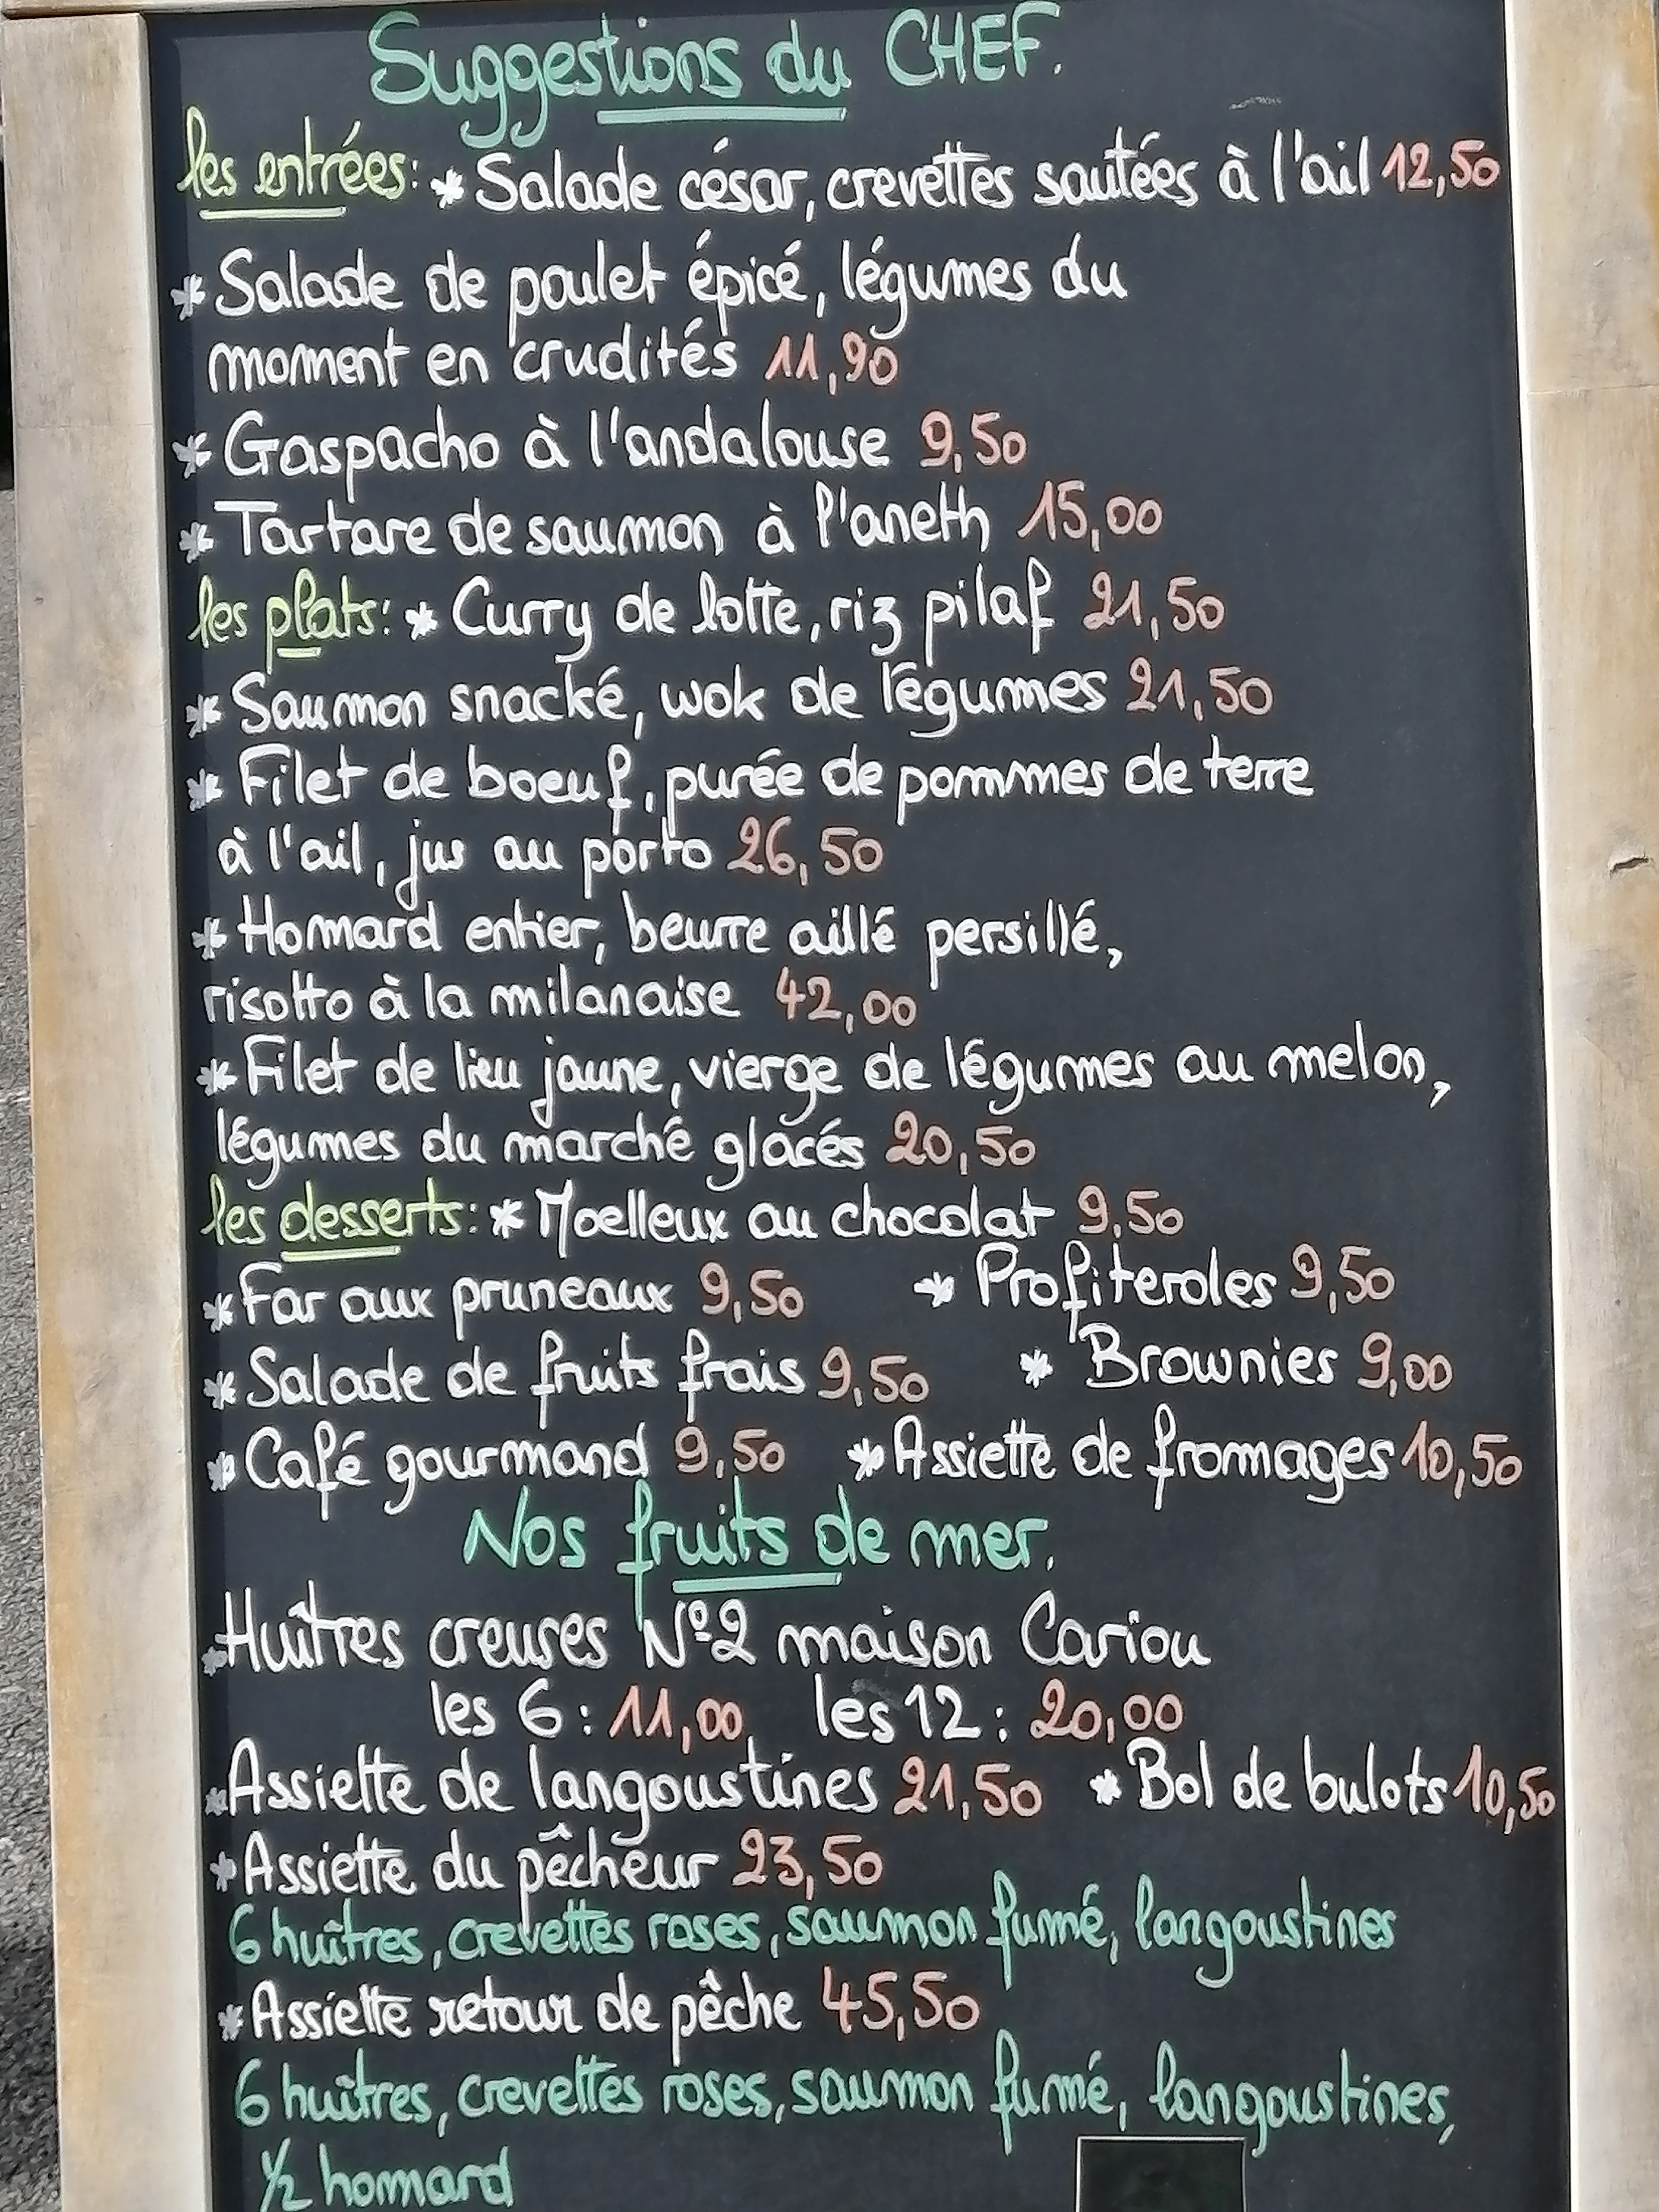 Suggestions du CHEF.
les entrées: * Salade césar, crevettes sautées à l'ail 12,50
* Salade de poulet épicé, légumes du
moment en crudités 11,90
* Gaspacho à l'andalouse 9,50
* Tartare de saumon à l'aneth 15,00
les plats: * Curry de lotte, riz pilaf 21,50
* Saumon snacké, wok de légumes 21,50
* Filet de boeuf, purée de pommes de terre
à l'ail, jus au porto 26,50
* Homard entier, beurre aillé persillé,
risotto à la milanaise 42,00
* Filet de lieu jaune, vierge de légumes au melon,
légumes du marché glacés 20,50
les desserts: * Moelleux au chocolat 9,50
* Far aux pruneaux 9,50 * Profiteroles 9,50
* Salade de fruits frais 9,50 * Brownies 9,00
* Café gourmand 9,50 * Assiette de fromages 10,50
Nos fruits de mer.
* Huîtres creuses N°2 maison Cariou
les 6 : 11,00 les 12 : 20,00
* Assiette de langoustines 21,50 * Bol de bulots 10,50
* Assiette du pêcheur 23,50
6 huîtres, crevettes roses, saumon fumé, langoustines
* Assiette retour de pêche 45,50
6 huîtres, crevettes roses, saumon fumé, langoustines,
1/2 homard